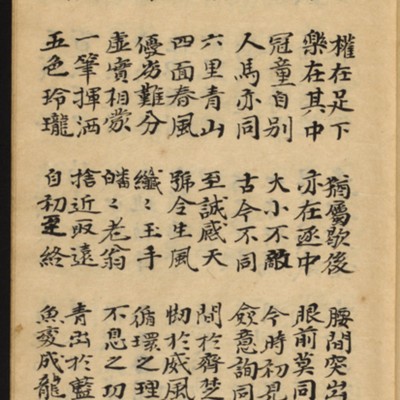 權在足下 猶屬歇後 腰間突出
樂在其中 亦在逐中 眼前莫同
冠童自別 大小不敵 今時初見
人馬亦同 古今不同 僉意詢同
六里青山 至誠感天 間於齊楚
四面春風 號令生風 於威風
優劣難分 纖〻玉手 循環之理
虛實相蒙 皤〻老翁 不息之功
一筆揮洒 捨近取遠 青出於藍
五色玲瓏 自初至終 魚変成龍